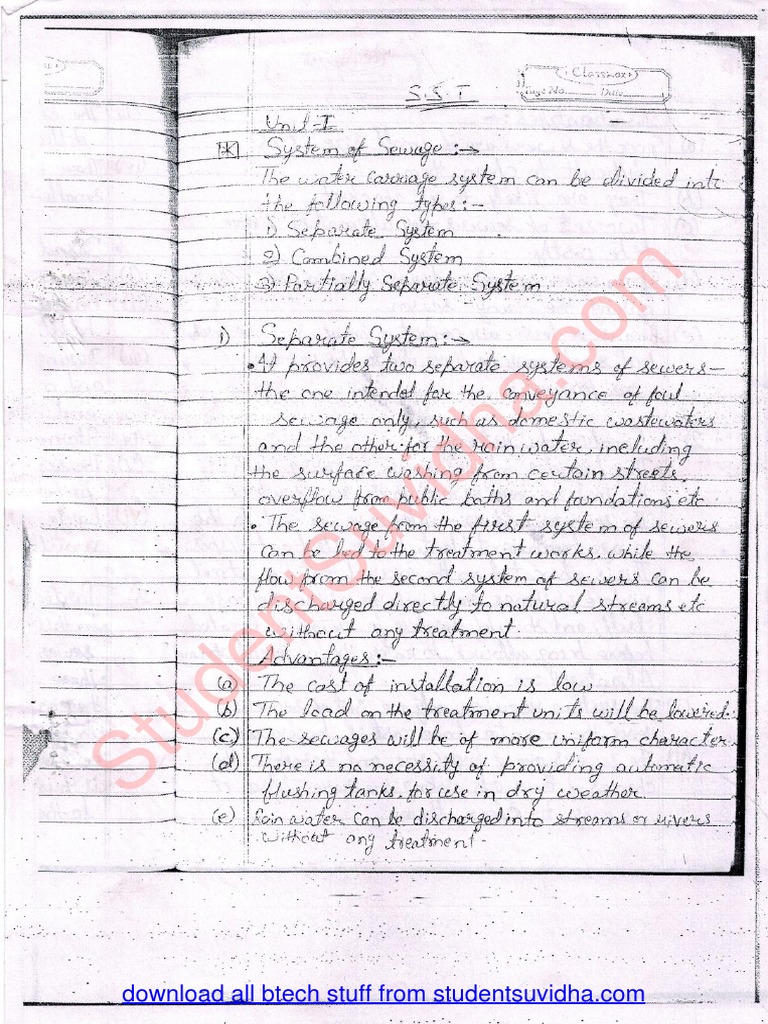 Classmax
Page No. Date
S.S.T
Unit-I
* System of Sewage :→
The water carriage system can be divided into
the following types:-
1) Separate System
2) Combined System
3) Partially Separate System
1) Separate System :→
• It provides two separate systems of sewers-
the one intended for the conveyance of foul
sewage only, such as domestic wastewaters
and the other for the rain water, including
the surface washing from certain streets,
overflow from public baths and foundations etc
• The sewage from the first system of sewers
can be led to the treatment works, while the
flow from the second system of sewers can be
discharged directly to natural streams etc
without any treatment.
Advantages :-
(a) The cost of installation is low
(b) The load on the treatment units will be lowered.
(c) The sewages will be of more uniform character
(d) There is no necessity of providing automatic
flushing tanks, for use in dry weather
(e) Rain water can be discharged into streams or rivers
without any treatment.
StudentSuvidha.com
download all btech stuff from studentsuvidha.com